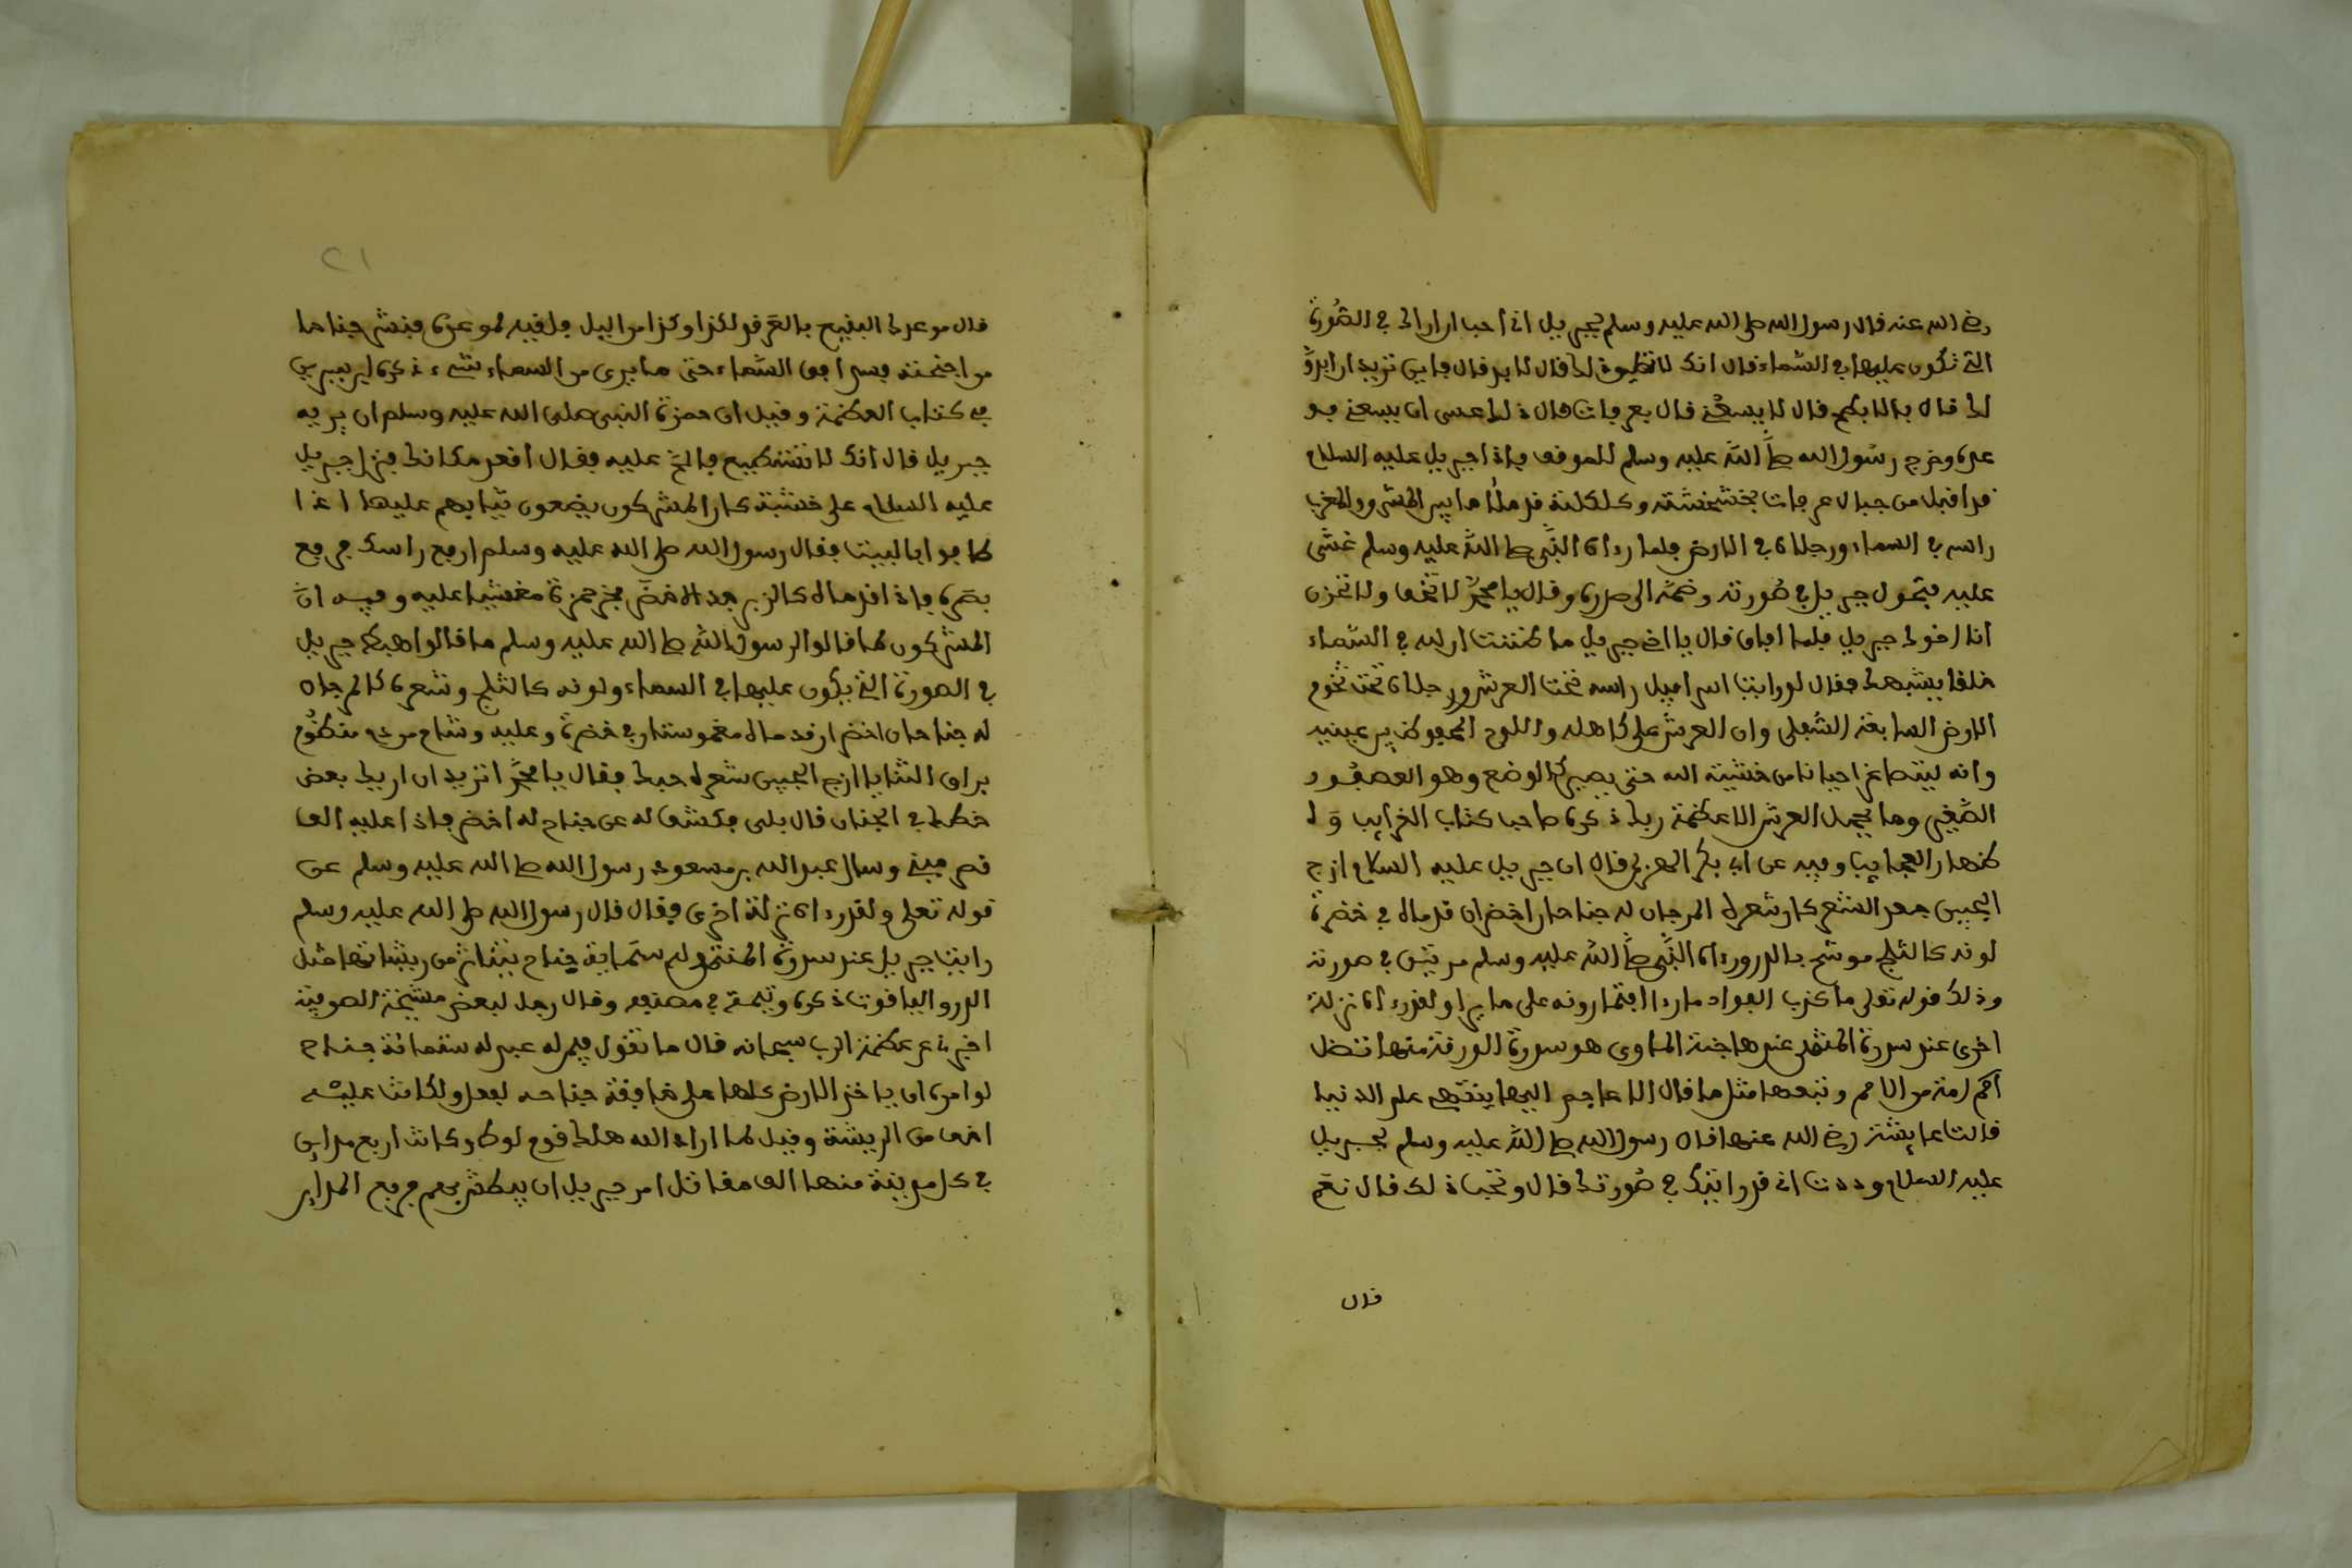 رضي الله عنه قال رسول الله صلى الله عليه وسلم لجبريل اني احب ان اراك في الصورة
التي تكون عليها في السماء قال انك لا تطيق ذلك قال لا بد قال فاين تريد ان ابدو
لك قال بالابطح قال لا يسعني قال بعرفات قال ذلك عسى ان يسعني فو
عده وخرج رسول الله صلى الله عليه وسلم للموقف فاذا جبريل عليه السلام
قد اقبل من جبال عرفات بخشخشة وكلكلة قد ملأ ما بين المشرق والمغرب
راسه في السماء ورجلاه في الارض فلما رءاه النبي صلى الله عليه وسلم غشي
عليه فتحول جبريل في صورته وضمه الى صدره وقال يا محمد لا تخف ولا تحزن
انا اخوك جبريل فلما افاق قال يا اخي جبريل ما ظننت ان لله في السماء
خلقا يشبهك فقال لو رايت اسرافيل راسه تحت العرش ورجلاه تحت تخوم
الارض السابعة السفلى وان العرش على كاهله واللوح المحفوظ بين عينيه
وانه ليتضاغر احيانا من خشية الله حتى يصير كالوضع وهو العصفور
الصغير وما يحمل العرش الا عظمة ربك ذكره صاحب كتاب الغرايب ولا
العجايب وفيه عن ابي بكر الهذلي قال ان جبريل عليه السلام ازج
الجبين جعد الشعر كان شعره المرجان له جناحان اخضران قدماه في خضرة
لونه كالثلج موشح بالدر ورءاه النبي صلى الله عليه وسلم مرتين في صورته
وذلك قوله تعلى ما كذب الفواد ما رءا افتمارونه على ما يرا ولقد رءاه نزلة
اخرى عند سدرة المنتهى عندها جنة الماوى هو سدرة الورقة منها تضل
اكم امة من الامم ونبعها مثل ما قال الاعاجم اليها ينتهي علم الدنيا
قالت عايشة رضي الله عنها قال رسول الله صلى الله عليه وسلم لجبريل
عليه السلام وددت اني قد رايتك في صورتك قال وتحب ذلك قال نعم
قال
٢١
قال موعدك البقيع بالغرقد لكذا وكذا من اليل فلقيه لموعده فنشر جناحا
من اجنحته فسد افق السماء حتى ما يرى من السماء شيء ذكره
في كتاب العظمة وقيل ان حمزة النبي صلى الله عليه وسلم ان يريه
جبريل قال انك لا تستطيع فالح عليه فقال اقعد مكانك فنزل جبريل
عليه السلام على خشبة كان المشركون يضعون ثيابهم عليها اذا
طافوا بالبيت فقال رسول الله صلى الله عليه وسلم ارفع راسك فرفع
بصره فاذا قدماه كالزبرجد الاخضر فخر حمزة مغشيا عليه وفيه ان
المشركون لما قالوا لرسول الله صلى الله عليه وسلم ما قالوا هبط جبريل
في الصورة التي يكون عليها في السماء ولونه كالثلج وشعره كالمرجان
له جناحان اخضران قدماه مغموستان في خضرة وعليه وشاح من در منظوم
براق الثنايا ازج الجبين شعره حبك فقال يا محمد اتريد ان اريك بعض
خطك في الجنان قال بلى فكشف له عن جناح له اخضر فاذا عليه الف
قصر مبني وسال عبد الله بن مسعود رسول الله صلى الله عليه وسلم عن
قوله تعلى ولقد رءاه نزلة اخرى فقال قال رسول الله صلى الله عليه وسلم
رايت جبريل عند سدرة المنتهى وله ستماية جناح يتناثر من ريشاتها مثل
الدر والياقوت ذكره في مصنفه وقال رجل لبعض مشيخة الصوفية
اخبرنا عن عظمة الرب سبحانه قال ما تقول فيمن له عبد له ستمائة جناح
لو امره ان ياخذ الارض كلها على خافقة جناحه لفعل ولكانت عليه
اخف من الريشة وقيل لما اراد الله هلاك قوم لوط وكانت اربع مداين
في كل مدينة منها الف مقاتل امر جبريل ان يبطش بهم فرفع المداين